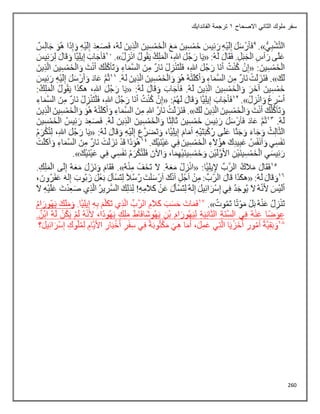 سفر ملوك الثاني الاصحاح ١ ترجمة الفاندايك
التِّشْبِيُّ». ٩ فَأَرْسَلَ إِلَيْهِ رَئِيسَ خَمْسِينَ مَعَ الْخَمْسِينَ الَّذِينَ لَهُ، فَصَعِدَ إِلَيْهِ وَإِذَا هُوَ جَالِسٌ
عَلَى رَأْسِ الْجَبَلِ. فَقَالَ لَهُ: «يَا رَجُلَ اللهِ، الْمَلِكُ يَقُولُ انْزِلْ». ١٠ فَأَجَابَ إِيلِيَّا وَقَالَ لِرَئِيسِ
الْخَمْسِينَ: «إِنْ كُنْتُ أَنَا رَجُلَ اللهِ، فَلْتَنْزِلْ نَارٌ مِنَ السَّمَاءِ وَتَأْكُلْكَ أَنْتَ وَالْخَمْسِينَ الَّذِينَ
لَكَ». فَنَزَلَتْ نَارٌ مِنَ السَّمَاءِ وَأَكَلَتْهُ هُوَ وَالْخَمْسِينَ الَّذِينَ لَهُ. ١١ ثُمَّ عَادَ وَأَرْسَلَ إِلَيْهِ رَئِيسَ
خَمْسِينَ آخَرَ وَالْخَمْسِينَ الَّذِينَ لَهُ. فَأَجَابَ وَقَالَ لَهُ: «يَا رَجُلَ اللهِ، هكَذَا يَقُولُ الْمَلِكُ:
أَسْرِعْ وَانْزِلْ». ١٢ فَأَجَابَ إِيلِيَّا وَقَالَ لَهُمْ: «إِنْ كُنْتُ أَنَا رَجُلَ اللهِ، فَلْتَنْزِلْ نَارٌ مِنَ السَّمَاءِ
وَتَأْكُلْكَ أَنْتَ وَالْخَمْسِينَ الَّذِينَ لَكَ». فَنَزَلَتْ نَارُ اللهِ مِنَ السَّمَاءِ وَأَكَلَتْهُ هُوَ وَالْخَمْسِينَ الَّذِينَ
لَهُ. ١٣ ثُمَّ عَادَ فَأَرْسَلَ رَئِيسَ خَمْسِينَ ثَالِثًا وَالْخَمْسِينَ الَّذِينَ لَهُ. فَصَعِدَ رَئِيسُ الْخَمْسِينَ
الثَّالِثُ وَجَاءَ وَجَثَا عَلَى رُكْبَتَيْهِ أَمَامَ إِيلِيَّا، وَتَضَرَّعَ إِلَيْهِ وَقَالَ لَهُ: «يَا رَجُلَ اللهِ، لِتُكْرَمْ
نَفْسِي وَأَنْفُسُ عَبِيدِكَ هؤُلاَءِ الْخَمْسِينَ فِي عَيْنَيْكَ. ١٤ هُوَذَا قَدْ نَزَلَتْ نَارٌ مِنَ السَّمَاءِ وَأَكَلَتْ
رَئِيسَيِ الْخَمْسِينَيْنِ الأَوَّلَيْنِ وَخَمْسِينَيْهِمَا، وَالآنَ فَلْتُكْرَمْ نَفْسِي فِي عَيْنَيْكَ».
١٥ فَقَالَ مَلاَكُ الرَّبِّ لإِيلِيَّا: «انْزِلْ مَعَهُ. لاَ تَخَفْ مِنْهُ». فَقَامَ وَنَزَلَ مَعَهُ إِلَى الْمَلِكِ.
١٦ وَقَالَ لَهُ: «هكَذَا قَالَ الرَّبُّ: مِنْ أَجْلِ أَنَّكَ أَرْسَلْتَ رُسُلاً لِتَسْأَلَ بَعْلَ زَبُوبَ إِلهَ عَقْرُونَ،
أَلَيْسَ لأَنَّهُ لاَ يُوجَدُ فِي إِسْرَائِيلَ إِلهٌ لِتَسْأَلَ عَنْ كَلاَمِهِ! لِذلِكَ السَّرِيرُ الَّذِي صَعِدْتَ عَلَيْهِ لاَ
تَنْزِلُ عَنْهُ بَلْ مَوْتًا تَمُوتُ». ١٧ فَمَاتَ حَسَبَ كَلاَمِ الرَّبِّ الَّذِي تَكَلَّمَ بِهِ إِيلِيَّا. وَمَلَكَ يَهُورَامُ
عِوَضًا عَنْهُ فِي السَّنَةِ الثَّانِيَةِ لِيَهُورَامَ بْنِ يَهُوشَافَاطَ مَلِكِ يَهُوذَا، لأَنَّهُ لَمْ يَكُنْ لَهُ ابْنٌ.
١٨ وَبَقِيَّةُ أُمُورِ أَخَزْيَا الَّتِي عَمِلَ، أَمَا هِيَ مَكْتُوبَةٌ فِي سِفْرِ أَخْبَارِ الأَيَّامِ لِمُلُوكِ إِسْرَائِيلَ؟
260